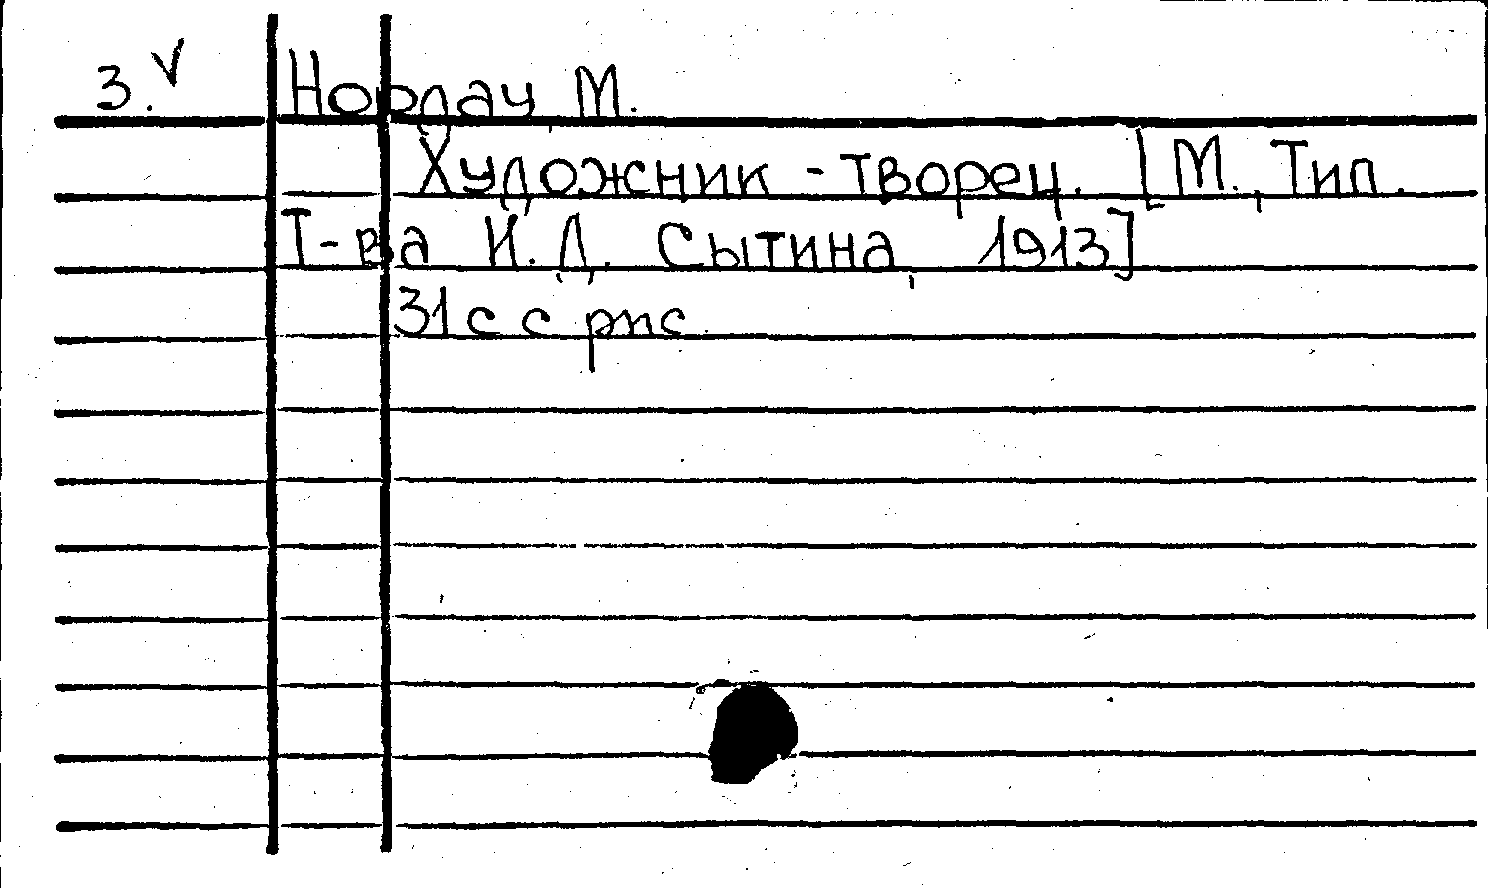 3. V Нордау, М.
Художник - творец. [М., Тип.
Т-ва И. Д. Сытина, 1913]
31 с с рис.